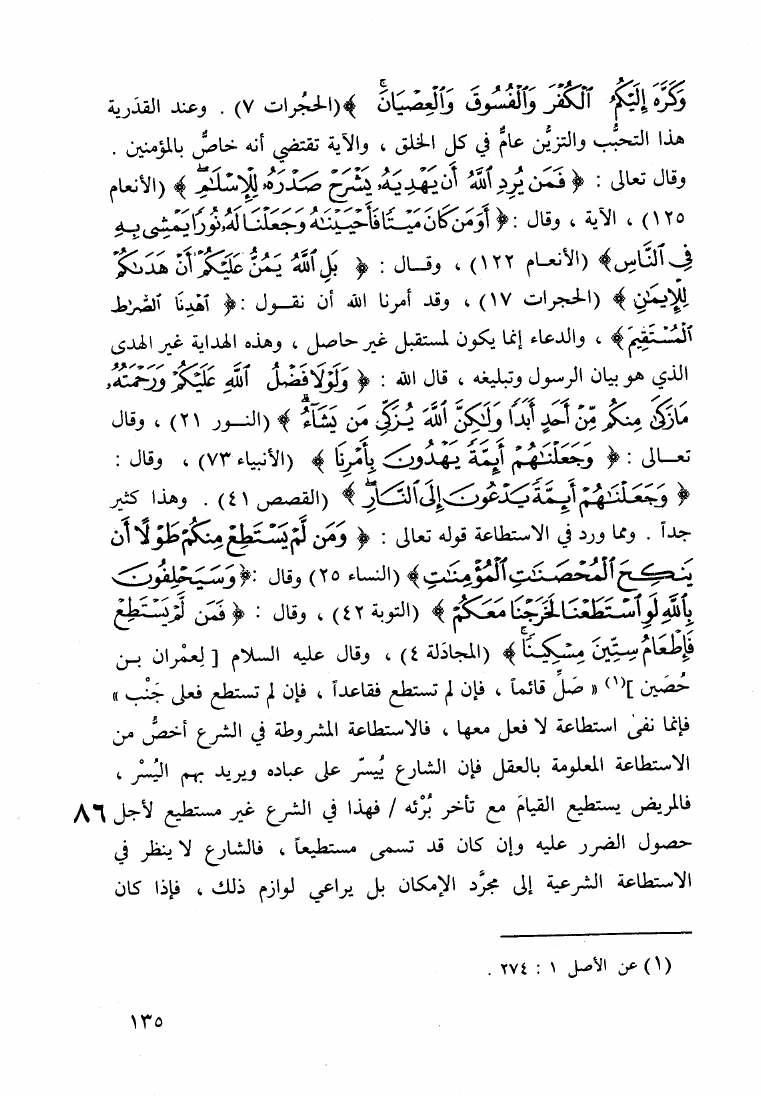 وَكَرَّهَ إِلَيْكُمُ ٱلْكُفْرَ وَٱلْفُسُوقَ وَٱلْعِصْيَانَ ﴾(الحجُرات ٧) . وعند القدَرية
هذا التحبُّب والتزيُّن عامٌّ في كل الخلق ، والآية تقتضي أنه خاصٌّ بالمؤمنين .
وقال تعالى : ﴿ فَمَن يُرِدِ ٱللَّهُ أَن يَهْدِيَهُۥ يَشْرَحْ صَدْرَهُۥ لِلْإِسْلَٰمِ ﴾ (الأنعام
١٢٥) ، الآية ، وقال :﴿ أَوَمَن كَانَ مَيْتًا فَأَحْيَيْنَٰهُ وَجَعَلْنَا لَهُۥ نُورًا يَمْشِى بِهِۦ
فِى ٱلنَّاسِ﴾ (الأنعام ١٢٢) ، وقال : ﴿ بَلِ ٱللَّهُ يَمُنُّ عَلَيْكُمْ أَنْ هَدَىٰكُمْ
لِلْإِيمَٰنِ ﴾ (الحجرات ١٧) ، وقد أمرنا الله أن نقول :﴿ ٱهْدِنَا ٱلصِّرَٰطَ
ٱلْمُسْتَقِيمَ﴾ ، والدعاء إنما يكون لمستقبل غير حاصل ، وهذه الهداية غير الهدى
الذي هو بيان الرسول وتبليغه ، قال الله : ﴿ وَلَوْلَا فَضْلُ ٱللَّهِ عَلَيْكُمْ وَرَحْمَتُهُۥ
مَا زَكَىٰ مِنكُم مِّنْ أَحَدٍ أَبَدًا وَلَٰكِنَّ ٱللَّهَ يُزَكِّى مَن يَشَآءُ ﴾ (النور ٢١) ، وقال
تعالى : ﴿ وَجَعَلْنَٰهُمْ أَئِمَّةً يَهْدُونَ بِأَمْرِنَا ﴾ (الأنبياء ٧٣) ، وقال :
﴿ وَجَعَلْنَٰهُمْ أَئِمَّةً يَدْعُونَ إِلَى ٱلنَّارِ ﴾ (القصص ٤١) . وهذا كثير
جداً . ومما ورد في الاستطاعة قوله تعالى : ﴿ وَمَن لَّمْ يَسْتَطِعْ مِنكُمْ طَوْلًا أَن
يَنكِحَ ٱلْمُحْصَنَٰتِ ٱلْمُؤْمِنَٰتِ﴾ (النساء ٢٥) وقال :﴿ وَسَيَحْلِفُونَ
بِٱللَّهِ لَوِ ٱسْتَطَعْنَا لَخَرَجْنَا مَعَكُمْ ﴾ (التوبة ٤٢) ، وقال : ﴿ فَمَن لَّمْ يَسْتَطِعْ
فَإِطْعَامُ سِتِّينَ مِسْكِينًا ﴾ (المجادَلة ٤) ، وقال عليه السلام [ لِعمْران بن
حُصَين ](١) « صَلِّ قائماً ، فإن لم تستطع فقاعداً ، فإن لم تستطع فعلى جَنْب »
فإنما نفىٰ استطاعة لا فعل معها ، فالاستطاعة المشروطة في الشرع أخصُّ من
الاستطاعة المعلومة بالعقل فإن الشارع يُيسّر على عباده ويريد بهم اليُسْر ،
فالمريض يستطيع القيامَ مع تأخر بُرْئه / فهذا في الشرع غير مستطيع لأجل ٨٦
حصول الضرر عليه وإن كان قد تسمى مستطيعاً ، فالشارع لا ينظر في
الاستطاعة الشرعية إلى مجرَّد الإمكان بل يراعي لوازم ذلك ، فإذا كان
(١) عن الأصل ١ : ٢٧٤ .
١٣٥